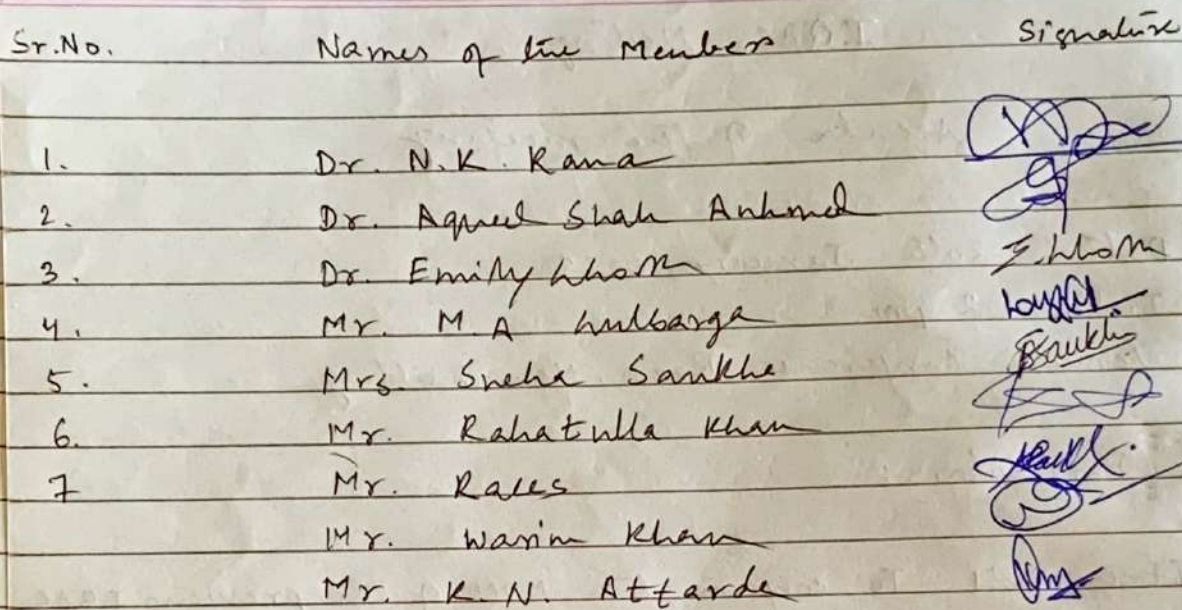 Sr.No. Names of the Members Signature
1. Dr. N.K. Rana
2. Dr. Aqueel Shah Anhmed
3. Dr. Emily
4. Mr. M.A
5. Mrs. Sneha Sankhe
6. Mr. Rahatulla Khan
7 Mr. Raees
Mr. Wasim Khan
Mr. K.N. Attarde